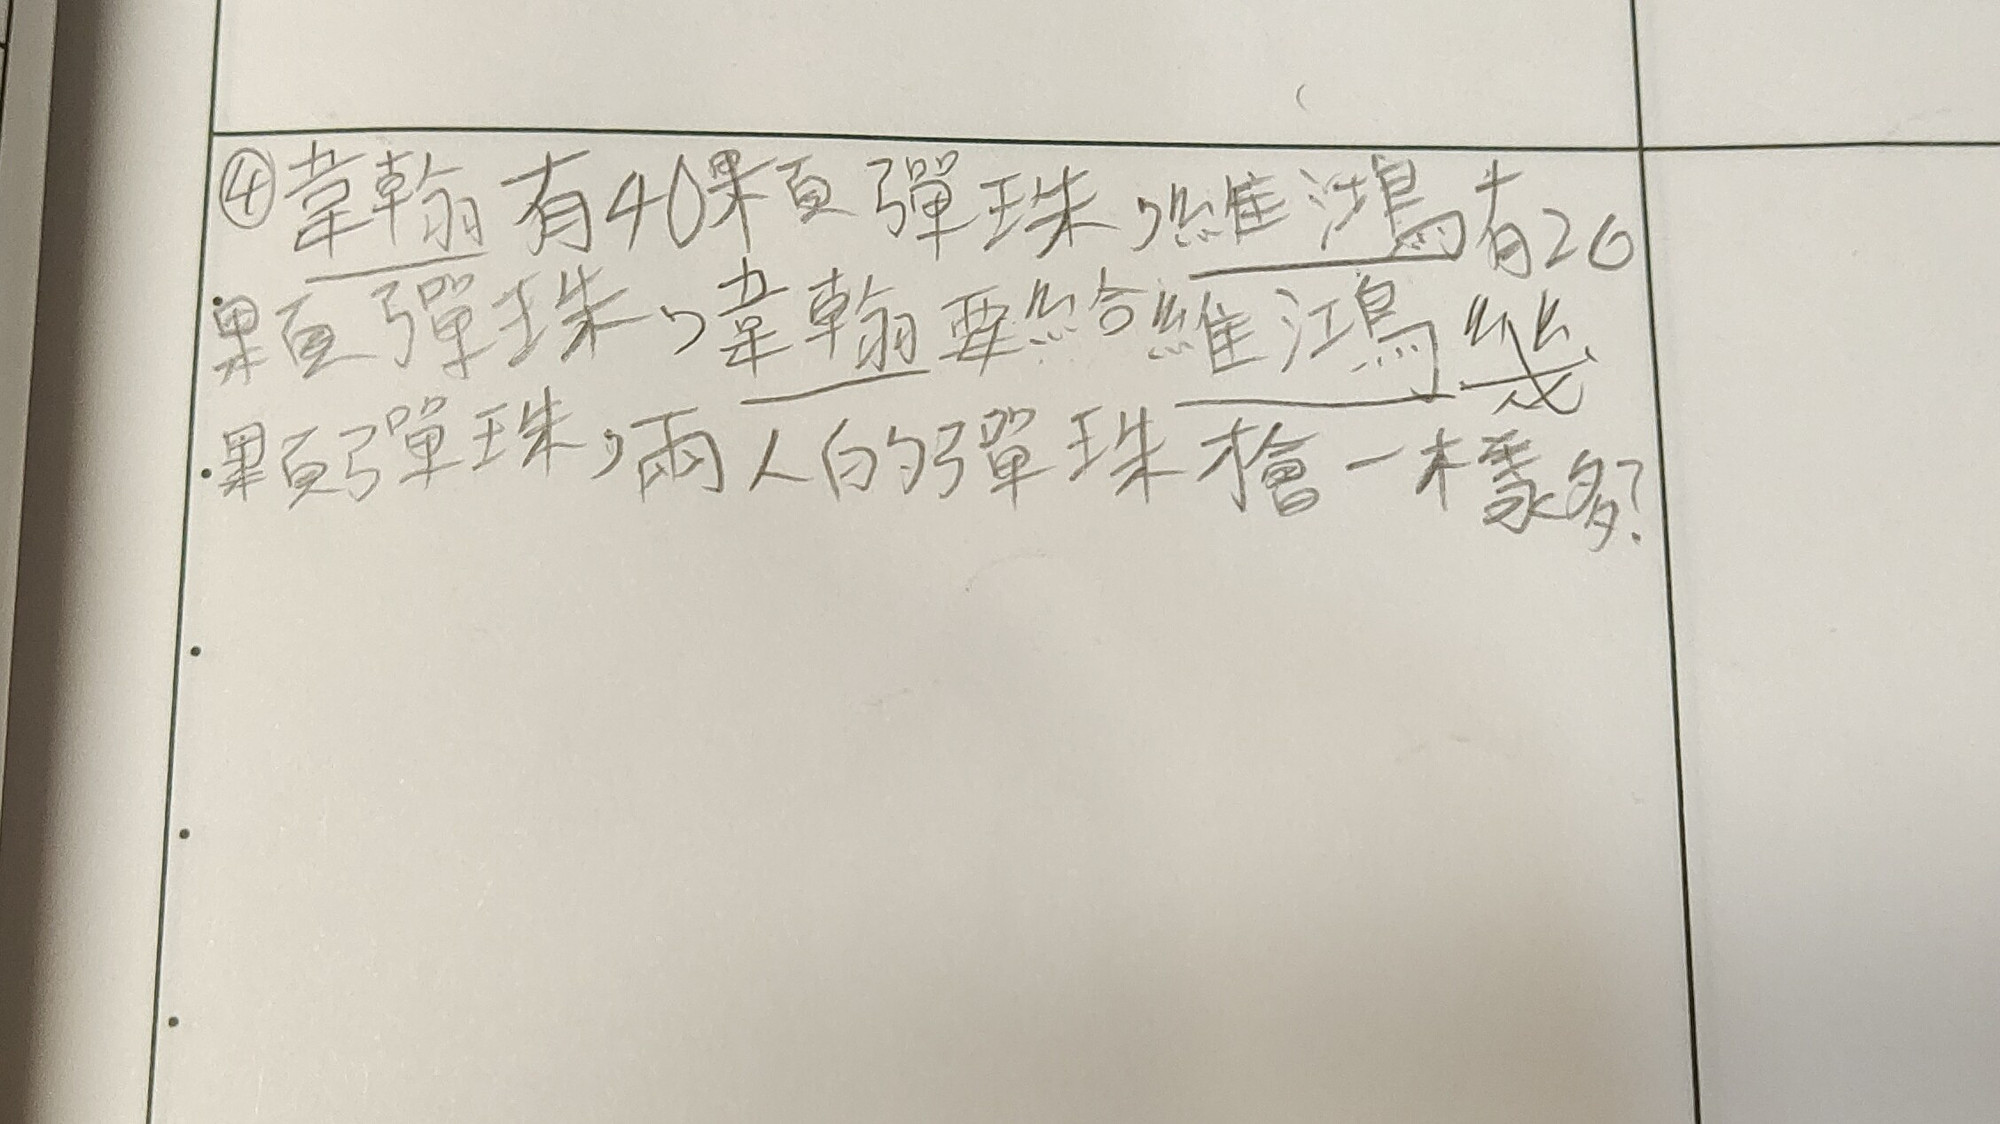 ④韋翰有40顆彈珠,維鴻有20
顆彈珠,韋翰要給維鴻幾
顆彈珠,兩人的彈珠檜一樣多?